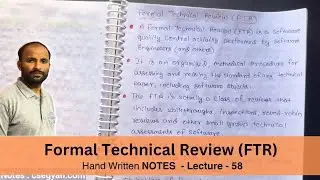 Formal Technical Review (FTR)
A Formal Technical Review (FTR) is a software
quality control activity performed by software
Engineers (and others)
It is an organized, methodical procedure for
assessing and raising the standard of any technical
paper, including software objects.
The FTR is actually a class of reviews that
includes walkthroughs, inspections, round-robin
reviews and other small group technical
assessments of software.
Notes : csegyan.com
Formal Technical Review (FTR)
Hand Written NOTES - Lecture - 58